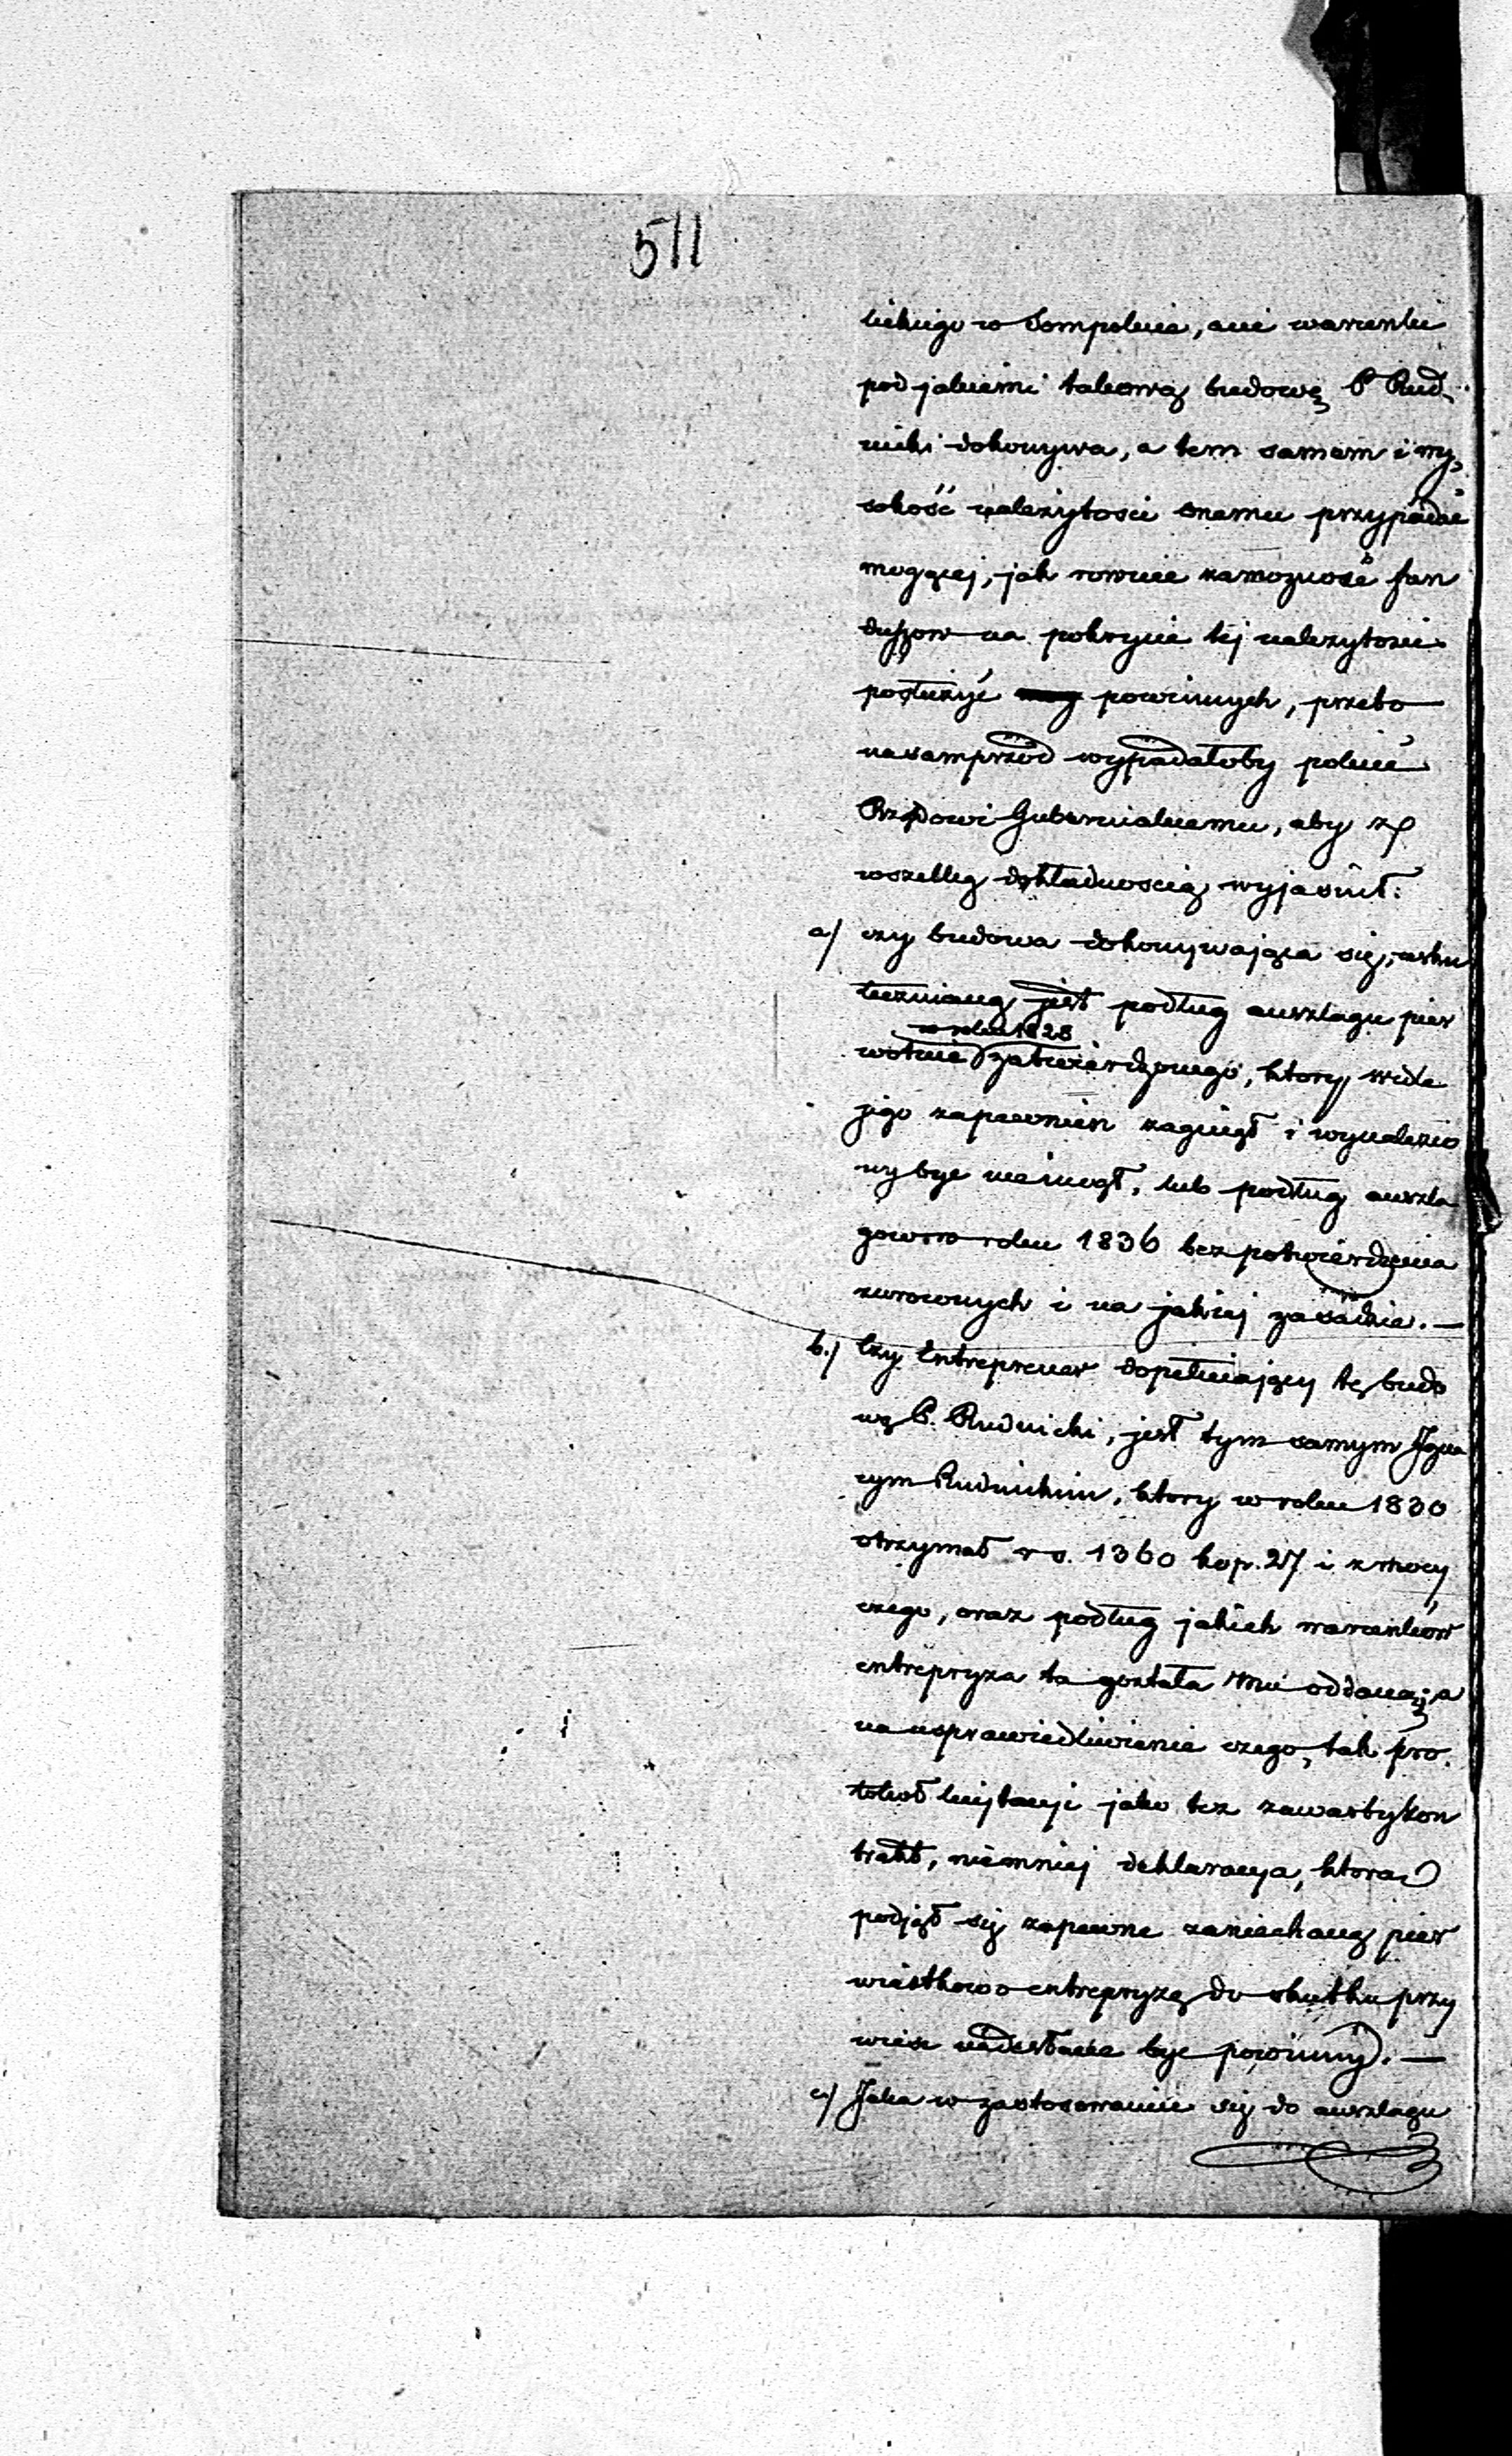 511
lickiego w Sompolnie, ani warunki
pod jakiemi takową budowę P Rud,
nicki dokonywa, a tem samem i wy,
sokość należytości onemu przypadać
mogącej, jak rownie zamożność fun
duszow na pokrycie tej należytości
posłużyć powinnych, przeto
nasamprzód wypadałoby polecić
Rządowi Gubernialnemu, aby z
wszelką dokładnością wyjaśnił:
a/ czy budowa dokonywająca się, usku
tecznianą jest podług anszlagu pier
w roku 1828
wotnie zatwierdzonego, ktory wedle
jego zapewnien zaginął i wynalezio
ny byc niemogł, lub podług anszla
gow w roku 1836 bez potwierdzenia
zwroconych i na jakiej zasadzie. —
b./ Czy Entreprener dopełniający tę budo
wę P. Rudnicki, jest tym samym Igna
cym Rudnickim, ktory w roku 1830
otrzymał rs. 1360 kop. 27 i z mocy
czego, oraz podług jakich warunków
entrepryza ta została mu oddaną, a
na usprawiedliwienie czego, tak pro.
tokoł licytacyi jako tez zawarty kon
trakt, niemniej deklaracya, ktora
podjął się zapewne zaniechaną pier
wiastkowo entrepryzę do skutku przy
wiesc nadesłane byc powinny. —
c/ Jaka w zastosowaniu się do anszlagu